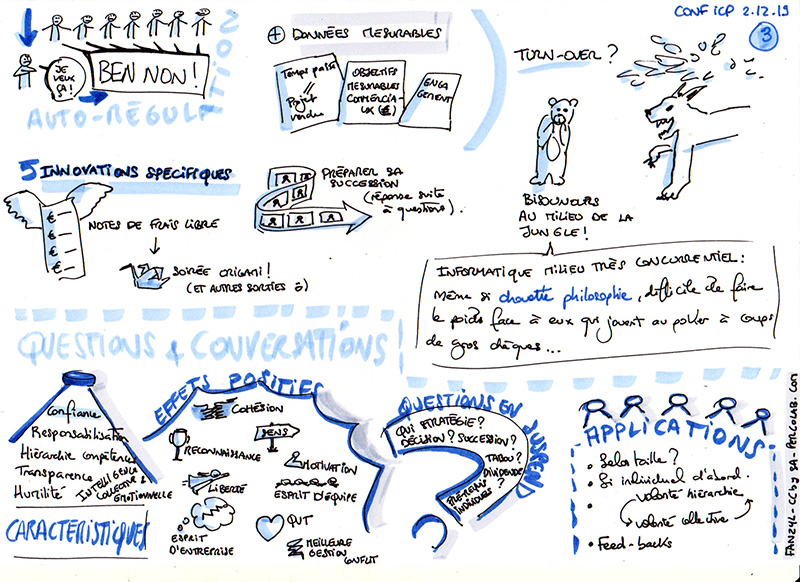 CONF ICP 2.12.19
3
JE
VEUX
ÇA!
BEN NON!
AUTO-RÉGULATION
+ DONNÉES MESURABLES
Temps passé
//
Projet
vendu
OBJECTIFS
MESURABLES
COMMERCIA-
UX (€)
ENGA
GEMENT
TURN-OVER?
BISOUNOURS
AU MILIEU DE LA
JUNGLE!
5 INNOVATIONS SPÉCIFIQUES
€
€
€
NOTES DE FRAIS LIBRE
SOIRÉE ORIGAMI!
(ET AUTRES SORTIES)
PRÉPARER SA
SUCCESSION
(réponse suite
à questions).
INFORMATIQUE MILIEU TRÈS CONCURRENTIEL:
Même si chouette philosophie, difficile de faire
le poids face à eux qui jouent au poker à coups
de gros chèques...
QUESTIONS & CONVERSATIONS
Confiance
Responsabilisation
Hiérarchie compétences
Transparence
Humilité
INTELLIGENCE
COLLECTIVE &
ÉMOTIONNELLE
CARACTÉRISTIQUES
EFFETS POSITIFS
COHÉSION
RECONNAISSANCE
SENS
MOTIVATION
LIBERTÉ
ESPRIT D'ÉQUIPE
ESPRIT
D'ENTREPRISE
QVT
MEILLEURE
GESTION
CONFLIT
QUESTIONS EN SUSPEND
QUI STRATÉGIE?
DÉCISION? SUCCESSION?
TABOU?
DIVIDENDE
?
APPLICATIONS
• Selon taille?
• Si individuel d'abord.
•
volonté hiérarchie
volonté collective
• Feed-backs
FANZYL - CC by SA - PHILCOLAB.com